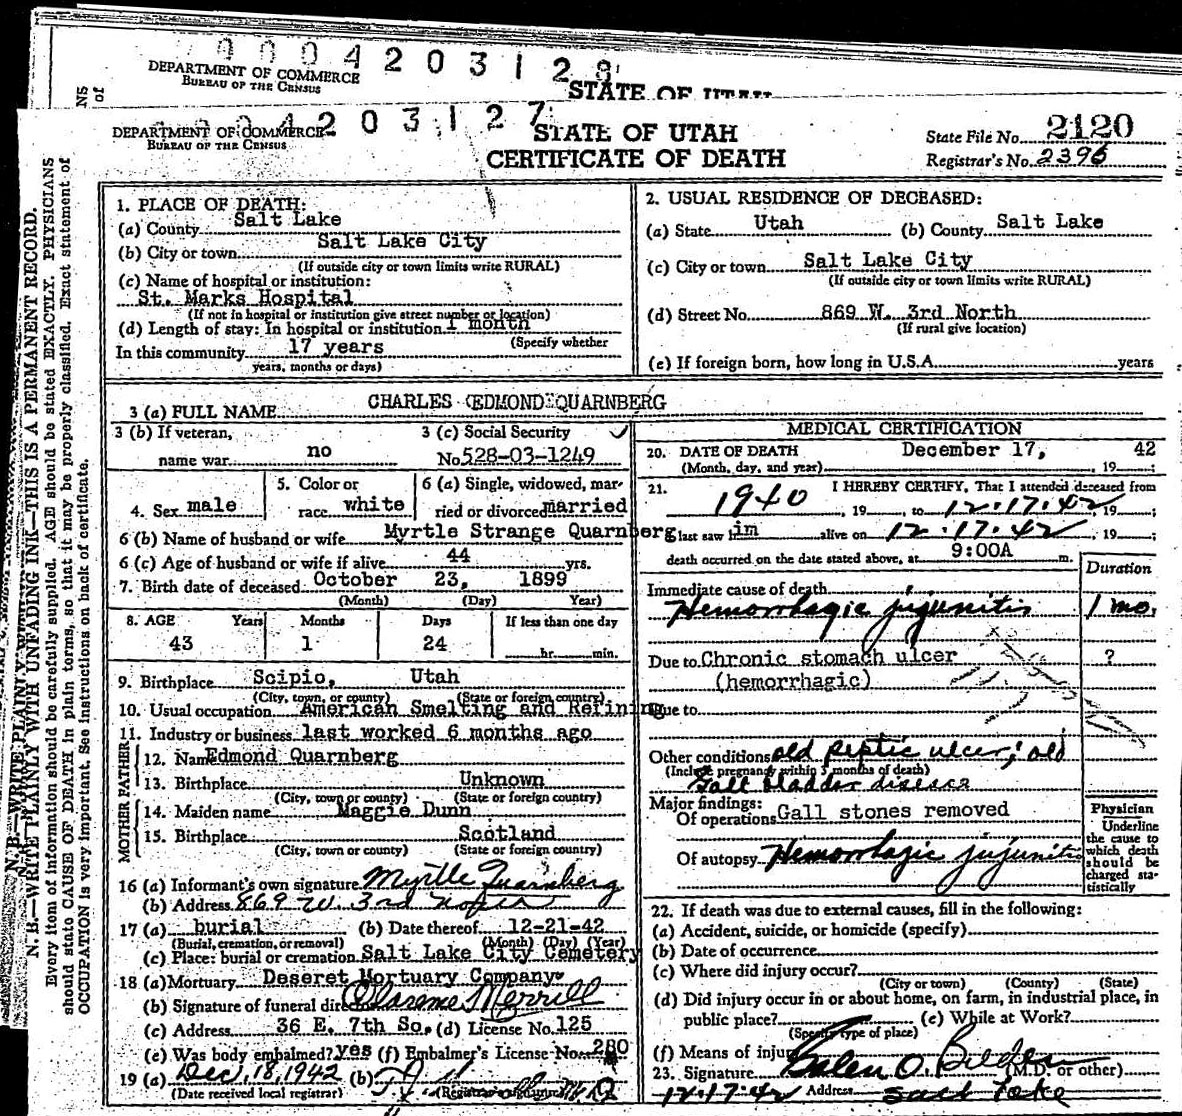 0004203128
DEPARTMENT OF COMMERCE
BUREAU OF THE CENSUS
STATE OF UTAH
4203127
DEPARTMENT OF COMMERCE
BUREAU OF THE CENSUS
STATE OF UTAH
CERTIFICATE OF DEATH
State File No. 2120
Registrar's No. 2396
N. B.—WRITE PLAINLY WITH UNFADING INK—THIS IS A PERMANENT RECORD.
Every item of information should be carefully supplied. AGE should be stated EXACTLY. PHYSICIANS
should state CAUSE OF DEATH in plain terms, so that it may be properly classified. Exact statement of
OCCUPATION is very important. See instructions on back of certificate.
1. PLACE OF DEATH:
(a) County Salt Lake
(b) City or town Salt Lake City
(If outside city or town limits write RURAL)
(c) Name of hospital or institution:
St. Marks Hospital
(If not in hospital or institution give street number or location)
(d) Length of stay: In hospital or institution 1 month
(Specify whether
In this community 17 years
years, months or days)
2. USUAL RESIDENCE OF DECEASED:
(a) State Utah (b) County Salt Lake
(c) City or town Salt Lake City
(If outside city or town limits write RURAL)
(d) Street No. 869 W. 3rd North
(If rural give location)
(e) If foreign born, how long in U.S.A. years
3 (a) FULL NAME CHARLES EDMOND QUARNBERG
3 (b) If veteran,
name war no
3 (c) Social Security
No 528-03-1249
4. Sex male
5. Color or
race white
6 (a) Single, widowed, mar-
ried or divorced married
6 (b) Name of husband or wife Myrtle Strange Quarnberg
6 (c) Age of husband or wife if alive 44 yrs.
7. Birth date of deceased October 23, 1899
(Month) (Day) Year)
8. AGE Years Months Days If less than one day
43 1 24 hr. min.
9. Birthplace Scipio, Utah
(City, town, or county) (State or foreign country)
10. Usual occupation American Smelting and Refining
11. Industry or business last worked 6 months ago
FATHER
12. Name Edmond Quarnberg
13. Birthplace Unknown
(City, town or county) (State or foreign country)
MOTHER
14. Maiden name Maggie Dunn
15. Birthplace Scotland
(City, town or county) (State or foreign country)
16 (a) Informant's own signature Myrtle Quarnberg
(b) Address 869 W. 3rd North
17 (a) burial (b) Date thereof 12-21-42
(Burial, cremation, or removal) (Month) (Day) (Year)
(c) Place: burial or cremation Salt Lake City Cemetery
18 (a) Mortuary Deseret Mortuary Company
(b) Signature of funeral director Clarence Merrill
(c) Address 36 E. 7th So. (d) License No. 125
(e) Was body embalmed? yes (f) Embalmer's License No. 280
19 (a) Dec. 18, 1942 (b)
(Date received local registrar)
MEDICAL CERTIFICATION
20. DATE OF DEATH December 17, 42
(Month, day, and year) , 19 ;
21. I HEREBY CERTIFY, That I attended deceased from
1940, 19 , to 12.17.42, 19 ;
I last saw him alive on 12.17.42, 19 ;
death occurred on the date stated above, at 9:00A m.
Duration
Immediate cause of death
Hemorrhagic jujunitis 1 mo.
Due to Chronic stomach ulcer ?
(hemorrhagic)
Due to
Other conditions old peptic ulcer; old
(Include pregnancy within 3 months of death)
Gall bladder disease
Major findings:
Of operations Gall stones removed
Of autopsy Hemorrhagic jujunitis
Physician
Underline
the cause to
which death
should be
charged sta-
tistically
22. If death was due to external causes, fill in the following:
(a) Accident, suicide, or homicide (specify)
(b) Date of occurrence
(c) Where did injury occur?
(City or town) (County) (State)
(d) Did injury occur in or about home, on farm, in industrial place, in
public place? (e) While at Work?
(Specify type of place)
(f) Means of injury
23. Signature Galen O. Belden (M.D. or other)
12.17.42 Address Salt Lake